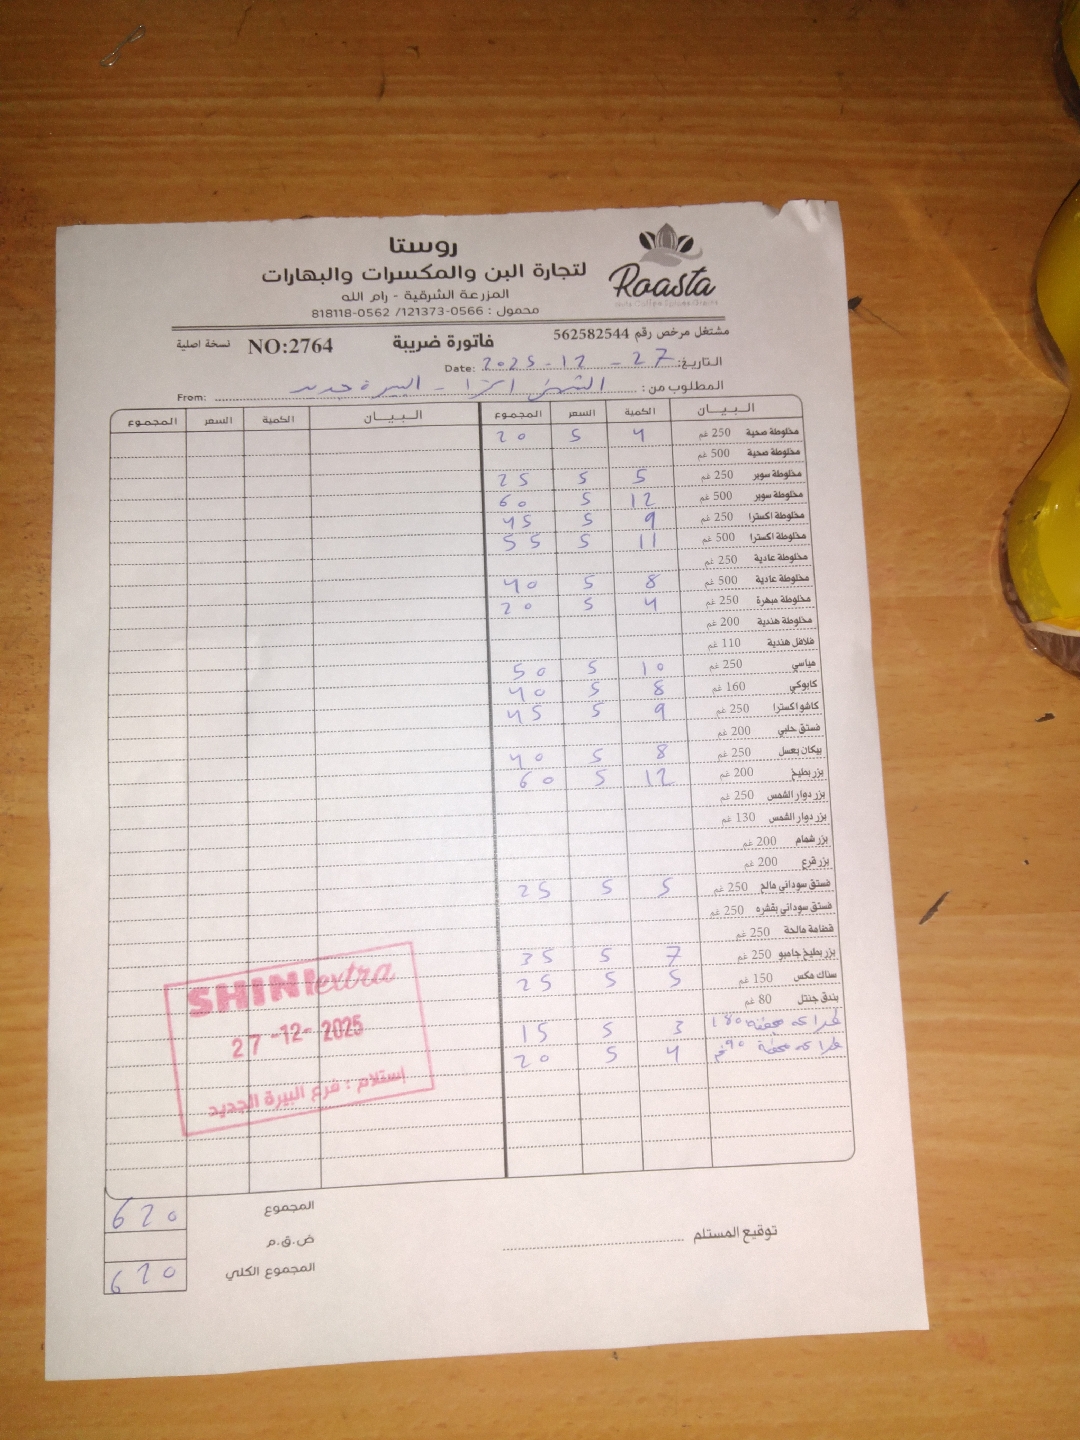 روستا
لتجارة البن والمكسرات والبهارات
المزرعة الشرقية - رام الله
محمول : 0566-121373/ 0562-818118
Roasta
Nuts Coffee Spices Grains
مشتغل مرخص رقم 562582544
فاتورة ضريبة
NO:2764
نسخة اصلية
التاريخ: 27 - 12 - 2025 Date:
المطلوب من : الشني اكسترا - البيرة جديد From:
البيان الكمية السعر المجموع البيان الكمية السعر المجموع
مخلوطة صحية 250 غم 4 5 20
مخلوطة صحية 500 غم
مخلوطة سوبر 250 غم 5 5 25
مخلوطة سوبر 500 غم 12 5 60
مخلوطة اكسترا 250 غم 9 5 45
مخلوطة اكسترا 500 غم 11 5 55
مخلوطة عادية 250 غم
مخلوطة عادية 500 غم 8 5 40
مخلوطة مبهرة 250 غم 4 5 20
مخلوطة هندية 200 غم
فلافل هندية 110 غم
مياسي 250 غم 10 5 50
كابوكي 160 غم 8 5 40
كاشو اكسترا 250 غم 9 5 45
فستق حلبي 200 غم
بيكان بعسل 250 غم 8 5 40
بزر بطيخ 200 غم 12 5 60
بزر دوار الشمس 250 غم
بزر دوار الشمس 130 غم
بزر شمام 200 غم
بزر قرع 200 غم
فستق سوداني مالح 250 غم 5 5 25
فستق سوداني بقشره 250 غم
قضامة مالحة 250 غم
بزر بطيخ جامبو 250 غم 7 5 35
سناك مكس 150 غم 5 5 25
بندق جنتل 80 غم
180 3 5 15
90 غم 4 5 20
SHINI extra
27-12-2025
إستلام : فرع البيرة الجديد
المجموع 620
ض.ق.م
المجموع الكلي 620
توقيع المستلم